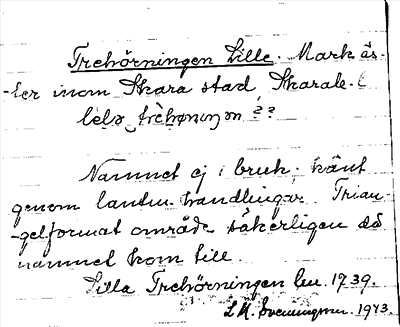 Trehörningen Lille. Mark ås-
-ter inom Skara stad, Skarab. l
lelə trèhønıŋən ??
Namnet ej i bruk. känt
genom lantm. handlingar. Trian-
-gelformat område säkerligen då
namnet kom till.
Lilla Trehörningen Lm. 1739.
1943.